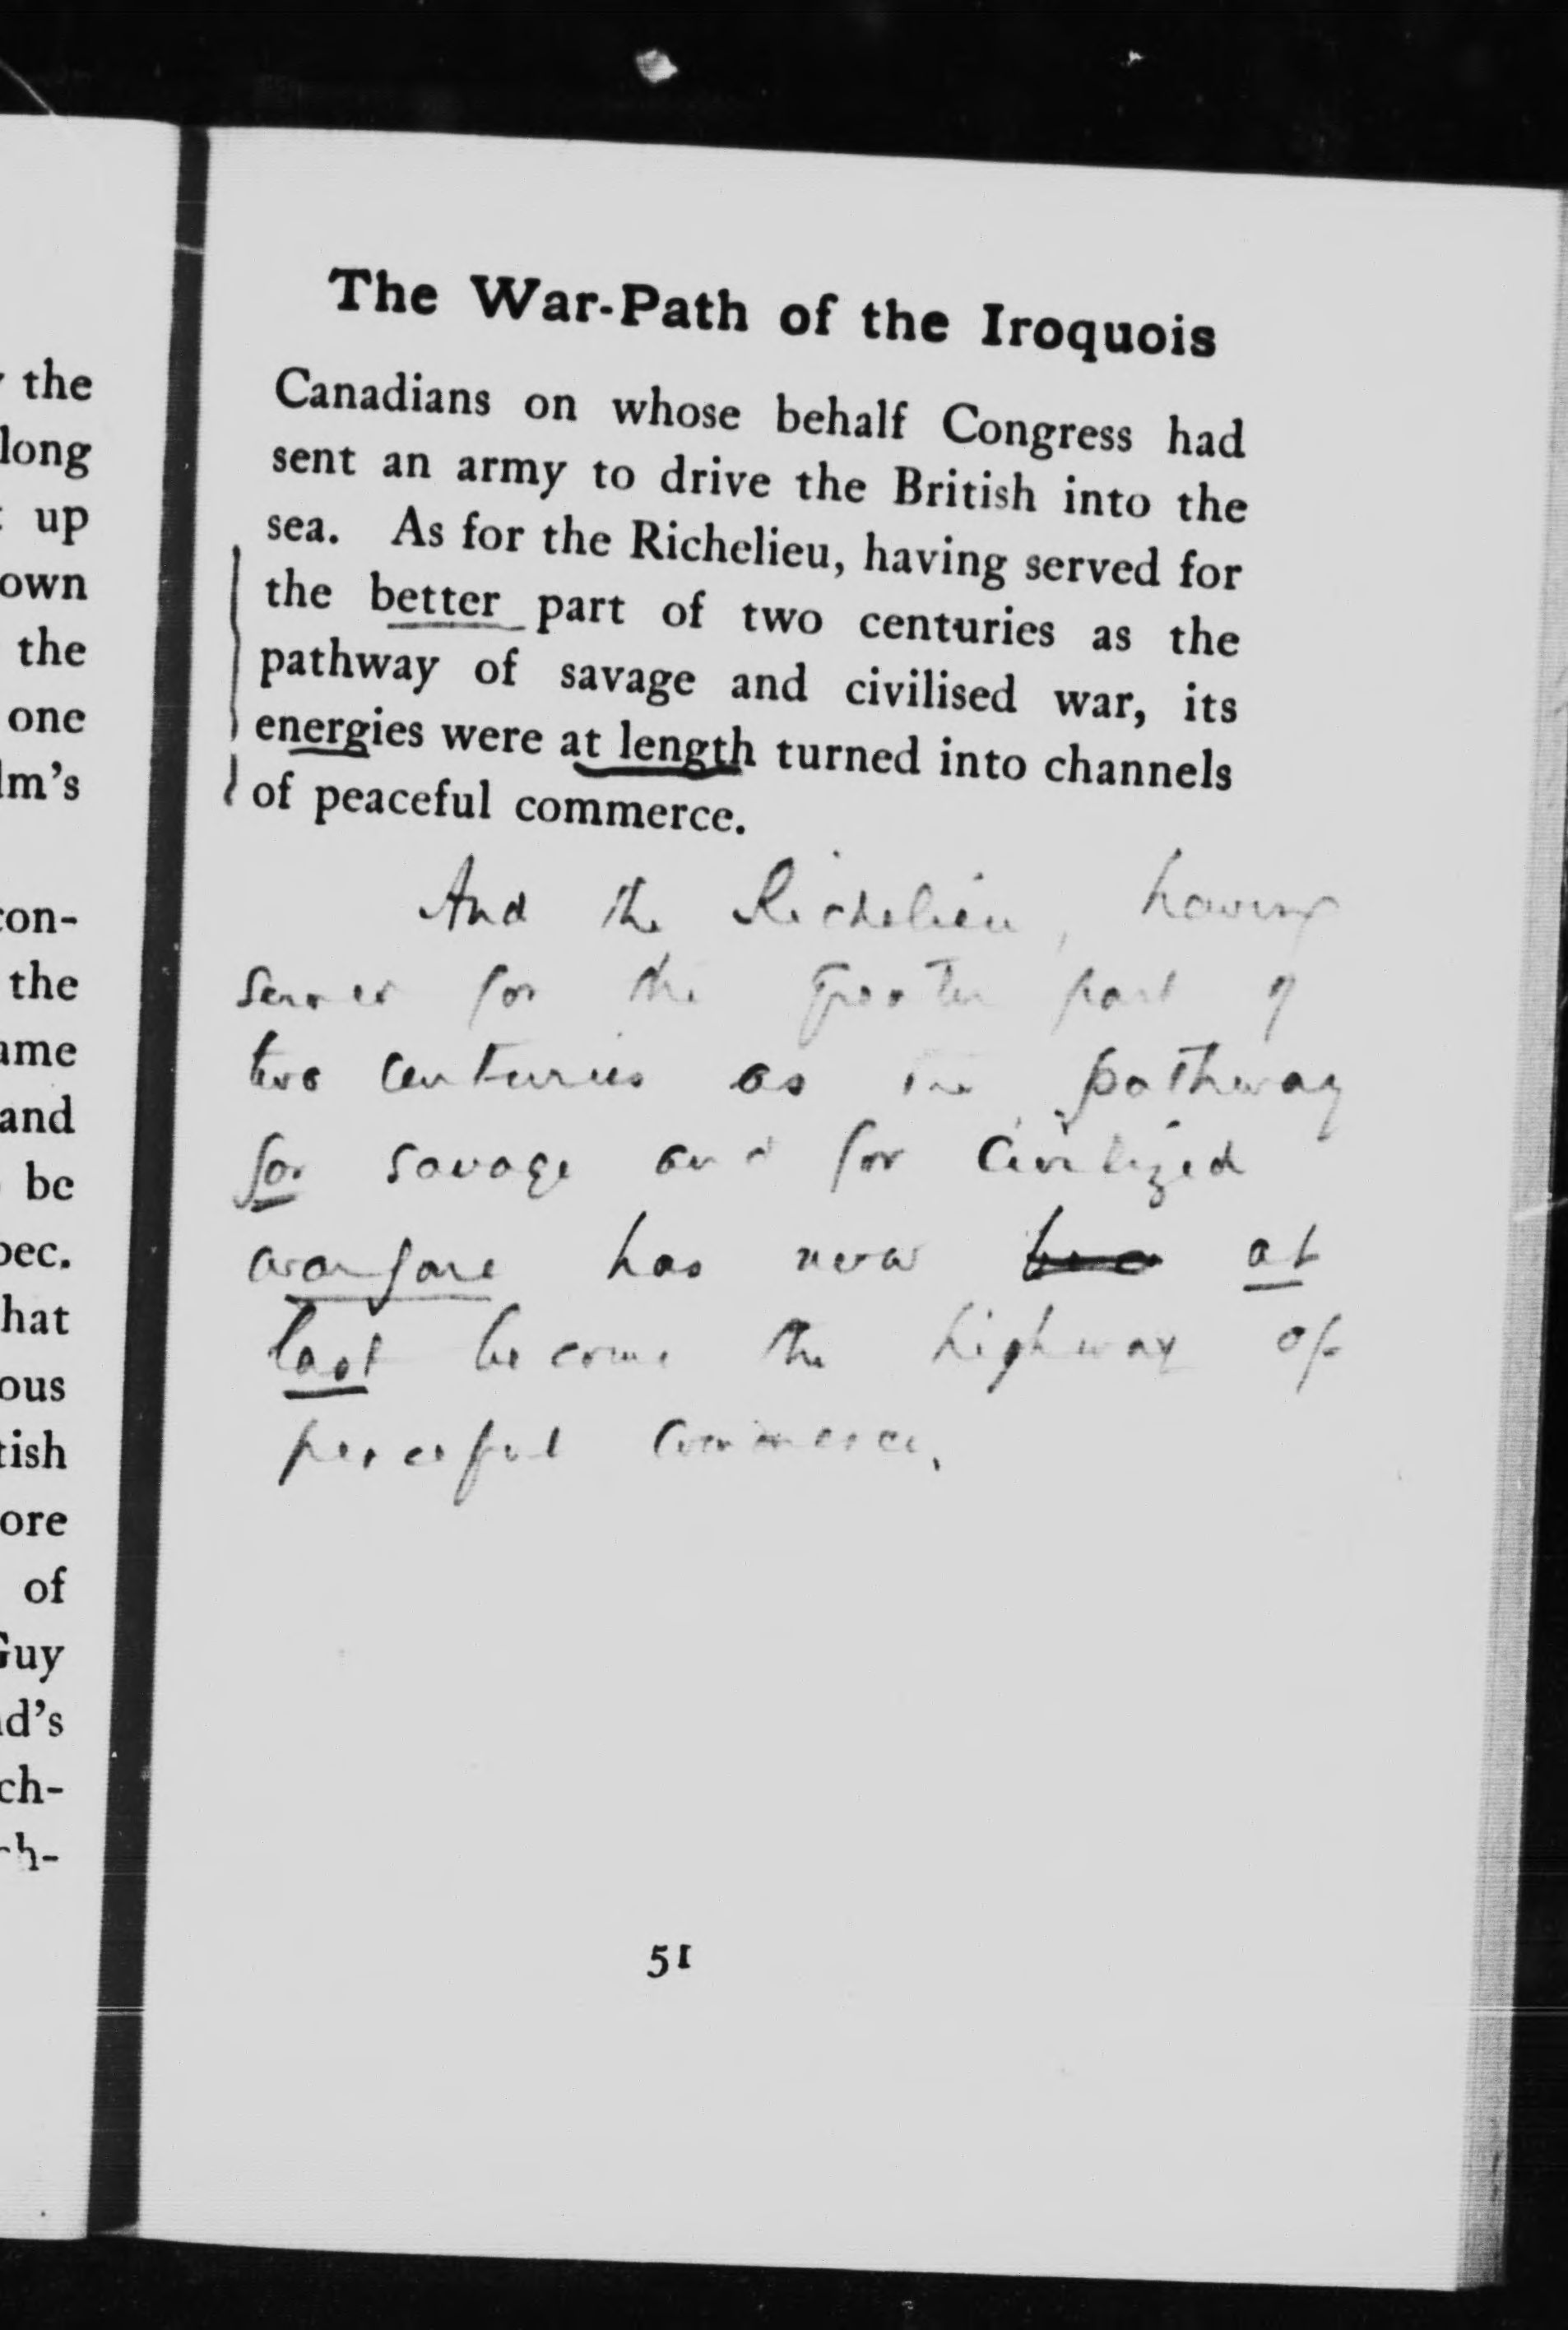 the
long
up
own
the
one
lm's
con-
the
ame
and
be
bec.
hat
ous
tish
ore
of
Guy
nd's
ch-
ch-
The War-Path of the Iroquois
Canadians on whose behalf Congress had
sent an army to drive the British into the
sea. As for the Richelieu, having served for
the better part of two centuries as the
pathway of savage and civilised war, its
energies were at length turned into channels
of peaceful commerce.
And the Richelieu, having
served for the greater part of
two centuries as the pathway
for savage and for civilized
warfare has now at
last become the highway of
peaceful commerce.
51